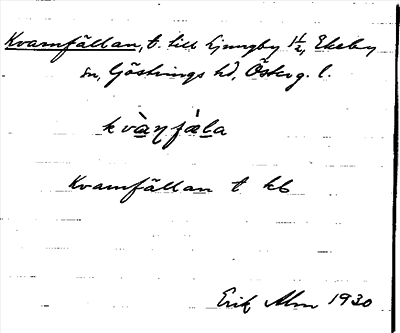 Kvarnfällan, t. till Ljungby 1/2, Ekeby
sn, Göstrings hd, Österg. l.
kvàɳfäla
Kvarnfällan t kb
Erik Alm 1930